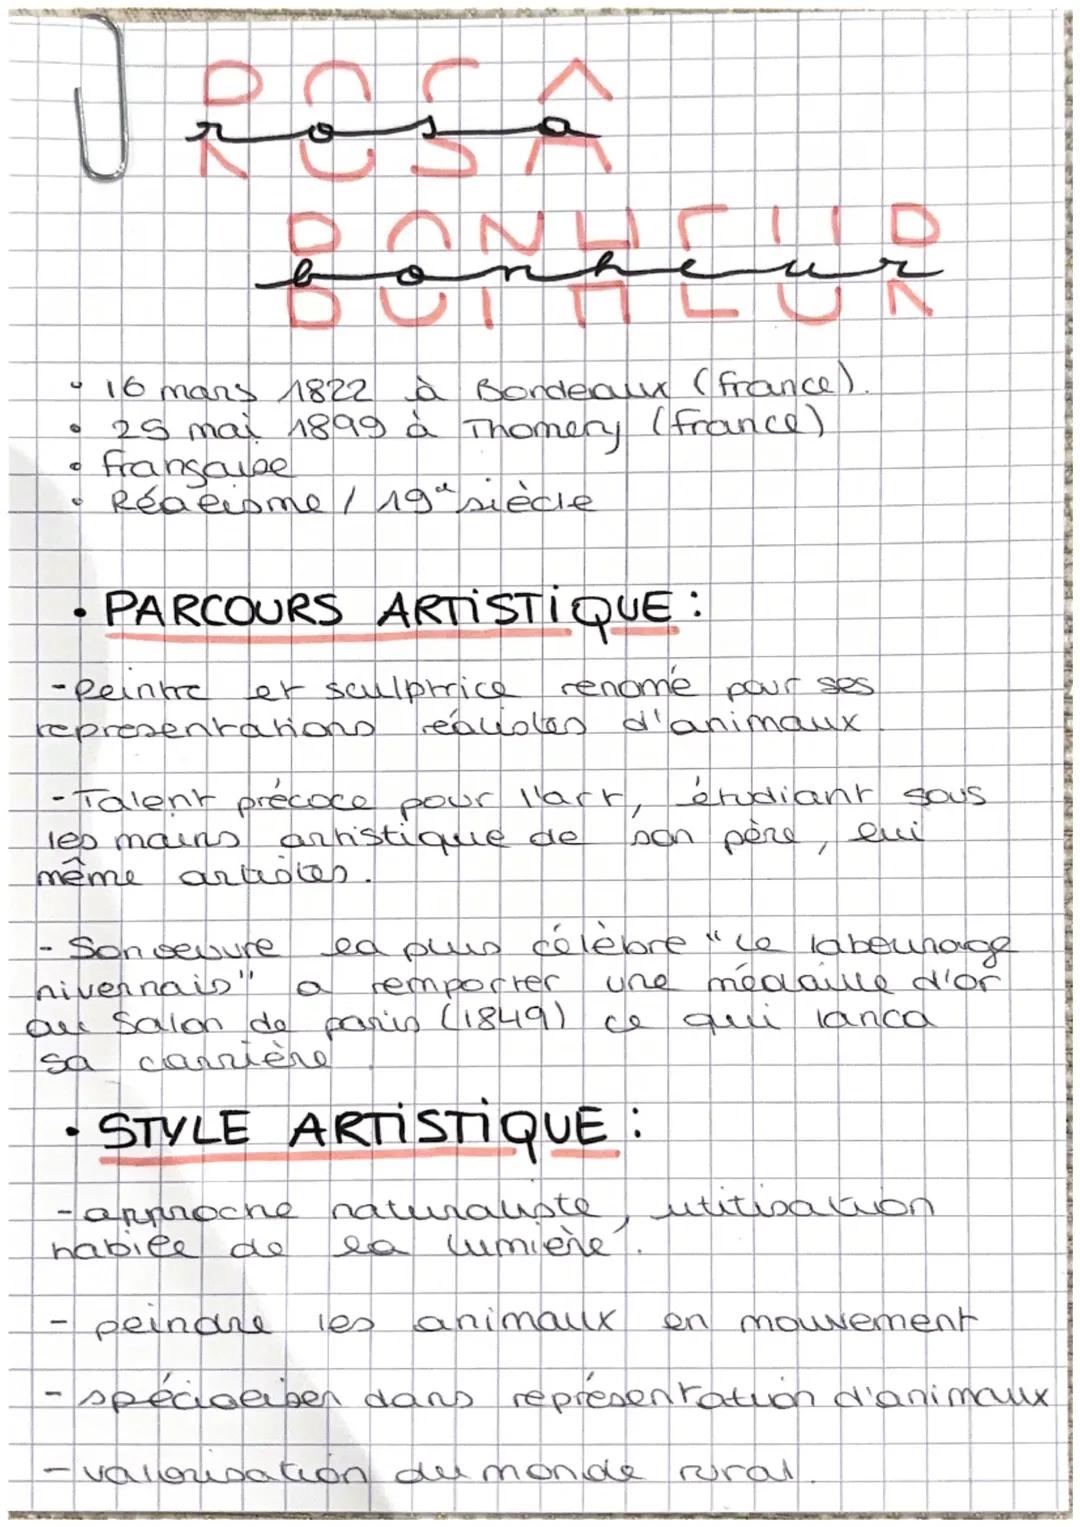 ROSA
rosa
BONHEUR
bonheur
• 16 mars 1822 à Bordeaux (france).
• 25 mai 1899 à Thomery (france)
• française
• Réalisme / 19e siècle
• PARCOURS ARTISTIQUE :
- Peintre et sculptrice renomé pour ses
representations réalistes d'animaux.
- Talent précoce pour l'art, étudiant sous
les mains artistique de son père, lui
même artistes.
- Son oeuvre la plus célèbre "Le labeurage
nivernais" a remporter une médaille d'or
au Salon de paris (1849) ce qui lanca
sa carrière.
• STYLE ARTISTIQUE :
- approche naturaliste, utitisation
habile de la lumière.
- peindre les animaux en mouvement
- spécialiser dans représentation d'animaux
- valorisation du monde rural.